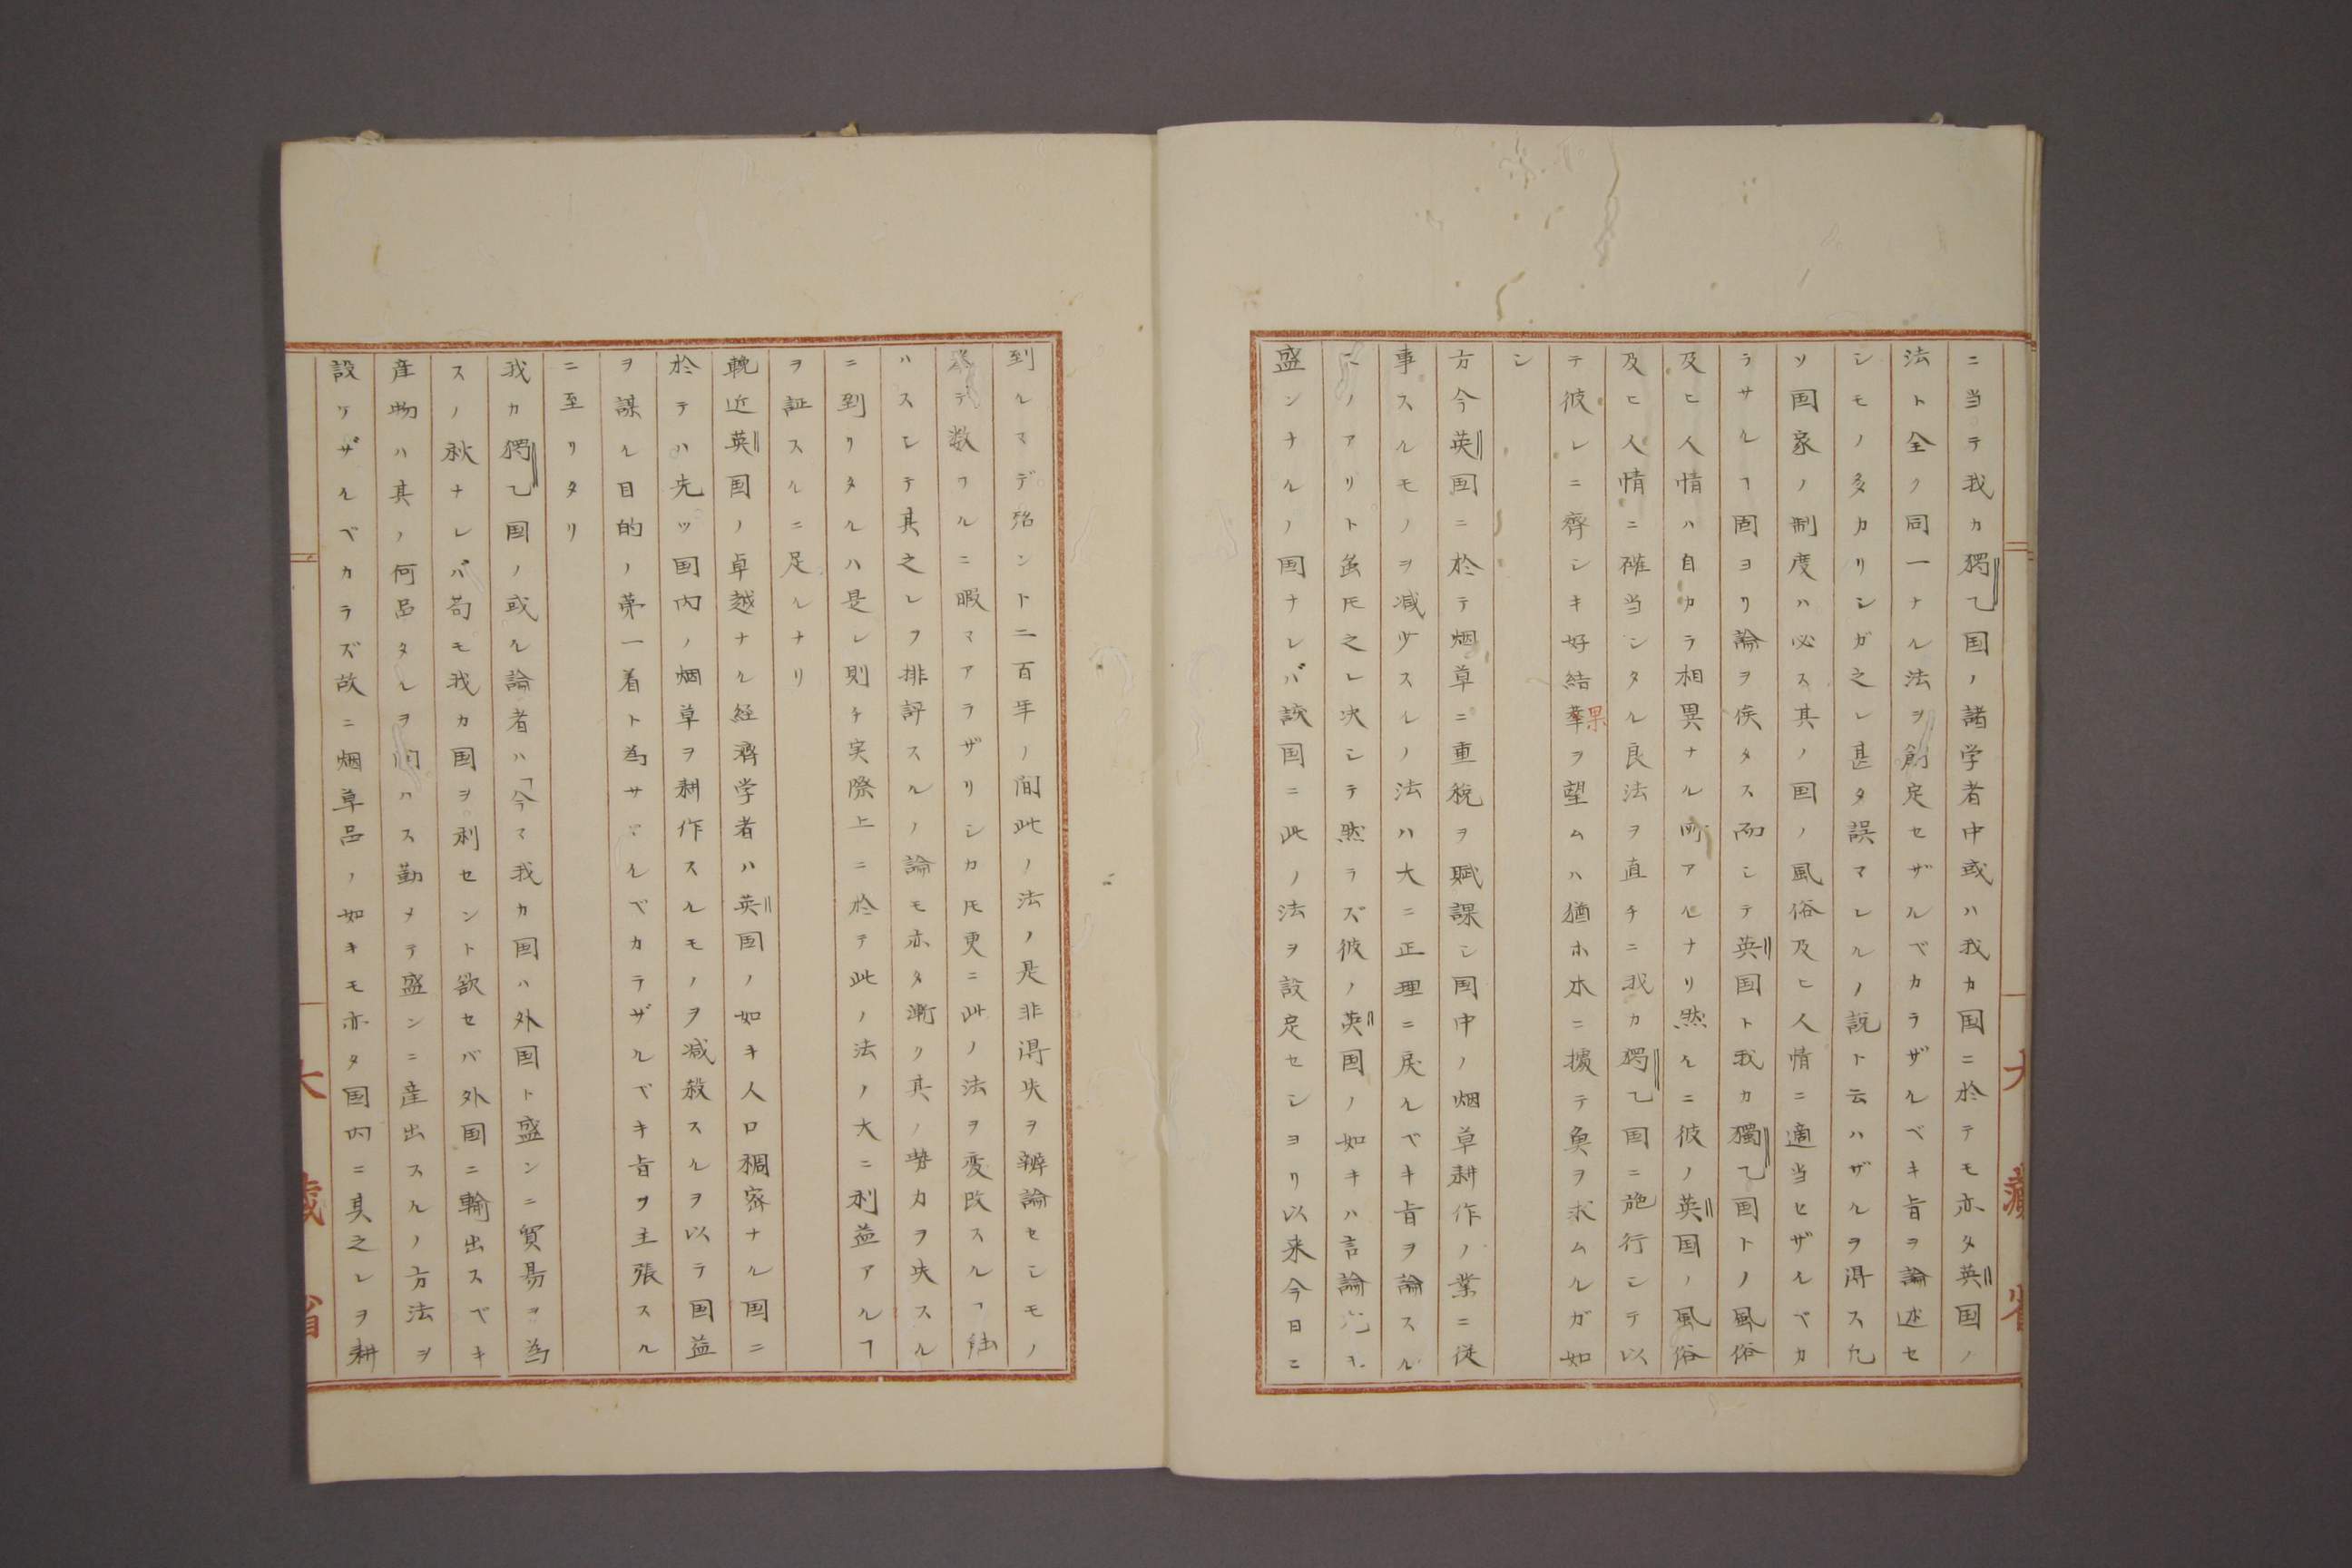 ニ当テ我カ獨乙国ノ諸学者中或ハ我カ国ニ於テモ亦タ英国ノ
法ト全ク同一ナル法ヲ創定セザルベカラザルベキ旨ヲ論述セ
シモノ多カリシガ之レ甚タ誤マレルノ説ト云ハザルヲ得ス凡
ソ国家ノ制度ハ必ス其ノ国ノ風俗及ヒ人情ニ適当セザルベカ
ラサルヿ固ヨリ論ヲ俟タス而シテ英国ト我カ獨乙国トノ風俗
及ヒ人情ハ自カラ相異ナル所アルナリ然ルニ彼ノ英国ノ風俗
及ヒ人情ニ確当シタル良法ヲ直チニ我カ獨乙国ニ施行シテ以
テ彼レニ齊シキ好結果ヲ望ムハ猶ホ木ニ據テ魚ヲ求ムルガ如
シ
方今英国ニ於テ烟草ニ重税ヲ賦課シ国中ノ烟草耕作ノ業ニ従
事スルモノヲ減少スルノ法ハ大ニ正理ニ戻ルベキ旨ヲ論スル
モノアリト雖𪜈之レ决シテ然ラズ彼ノ英国ノ如キハ言論
盛ンナルノ国ナレバ該国ニ此ノ法ヲ設定セシヨリ以来今日ニ
大藏省
到ルマデ殆ント二百年ノ間此ノ法ノ是非得失ヲ辨論セシモノ
テ数フルニ暇マアラザリシカ𪜈更ニ此ノ法ヲ変改スルヿ能
ハスシテ其之レヲ排評スルノ論モ亦タ漸ク其ノ勢力ヲ失スル
ニ到リタルハ是レ則チ実際上ニ於テ此ノ法ノ大ニ利益アルヿ
ヲ証スルニ足ルナリ
輓近英国ノ卓越ナル経濟学者ハ英国ノ如キ人口稠密ナル国ニ
於テハ先ツ国内ノ烟草ヲ耕作スルモノヲ减殺スルヲ以テ国益
ヲ謀ル目的ノ第一着ト為サヾルベカラザルベキ旨ヲ主張スル
ニ至リタリ
我カ獨乙国ノ或ル論者ハ「今マ我カ国ハ外国ト盛ンニ貿易ヲ為
スノ秋ナレバ苟モ我カ国ヲ利セント欲セバ外国ニ輸出スベキ
産物ハ其ノ何品タルヲ問ハス勤メテ盛ンニ産出スルノ方法ヲ
設ケザルベカラズ故ニ烟草品ノ如キモ亦タ国内ニ其之レヲ耕
大藏省